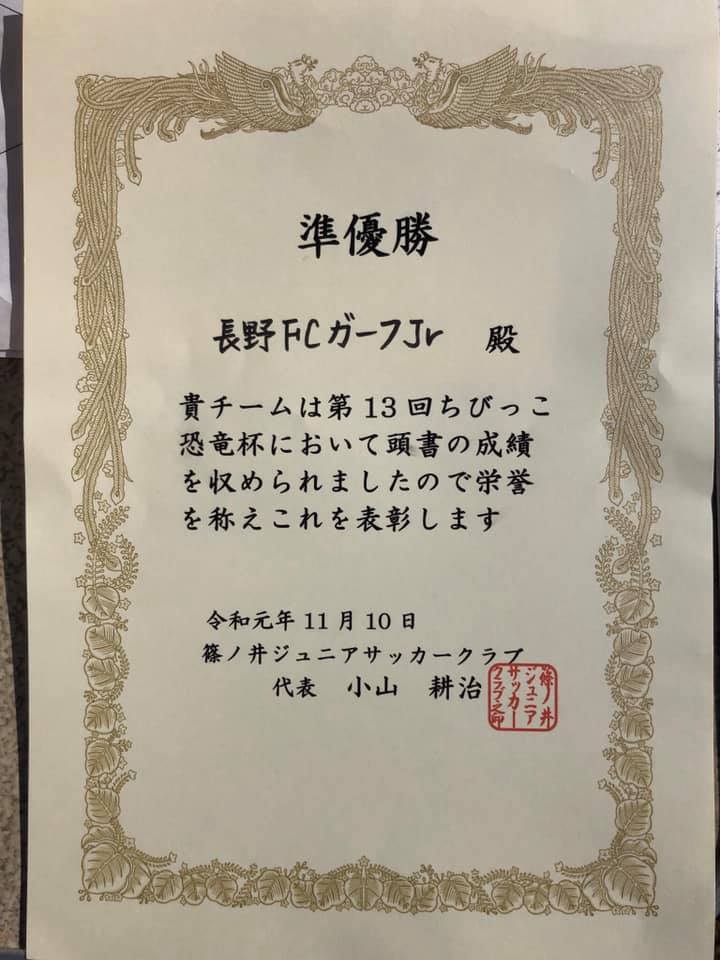 準優勝
長野FCガーフJr 殿
貴チームは第13回ちびっこ
恐竜杯において頭書の成績
を収められましたので栄誉
を称えこれを表彰します
令和元年11月10日
篠ノ井ジュニアサッカークラブ
代表 小山 耕治
篠ノ井
ジュニア
サッカー
クラブ之印